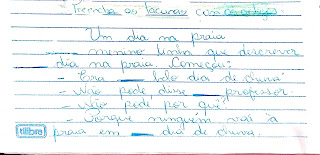 "Preencha as lacunas com
Um dia na praia
___ menino tinha que descrever
dia na praia. Começou:
- Era ___ belo dia de chuva
- Não pode disse ___ professor.
- Não pode por quê?
- Porque ninguém vai à
praia em ___ dia de chuva.
tilibra